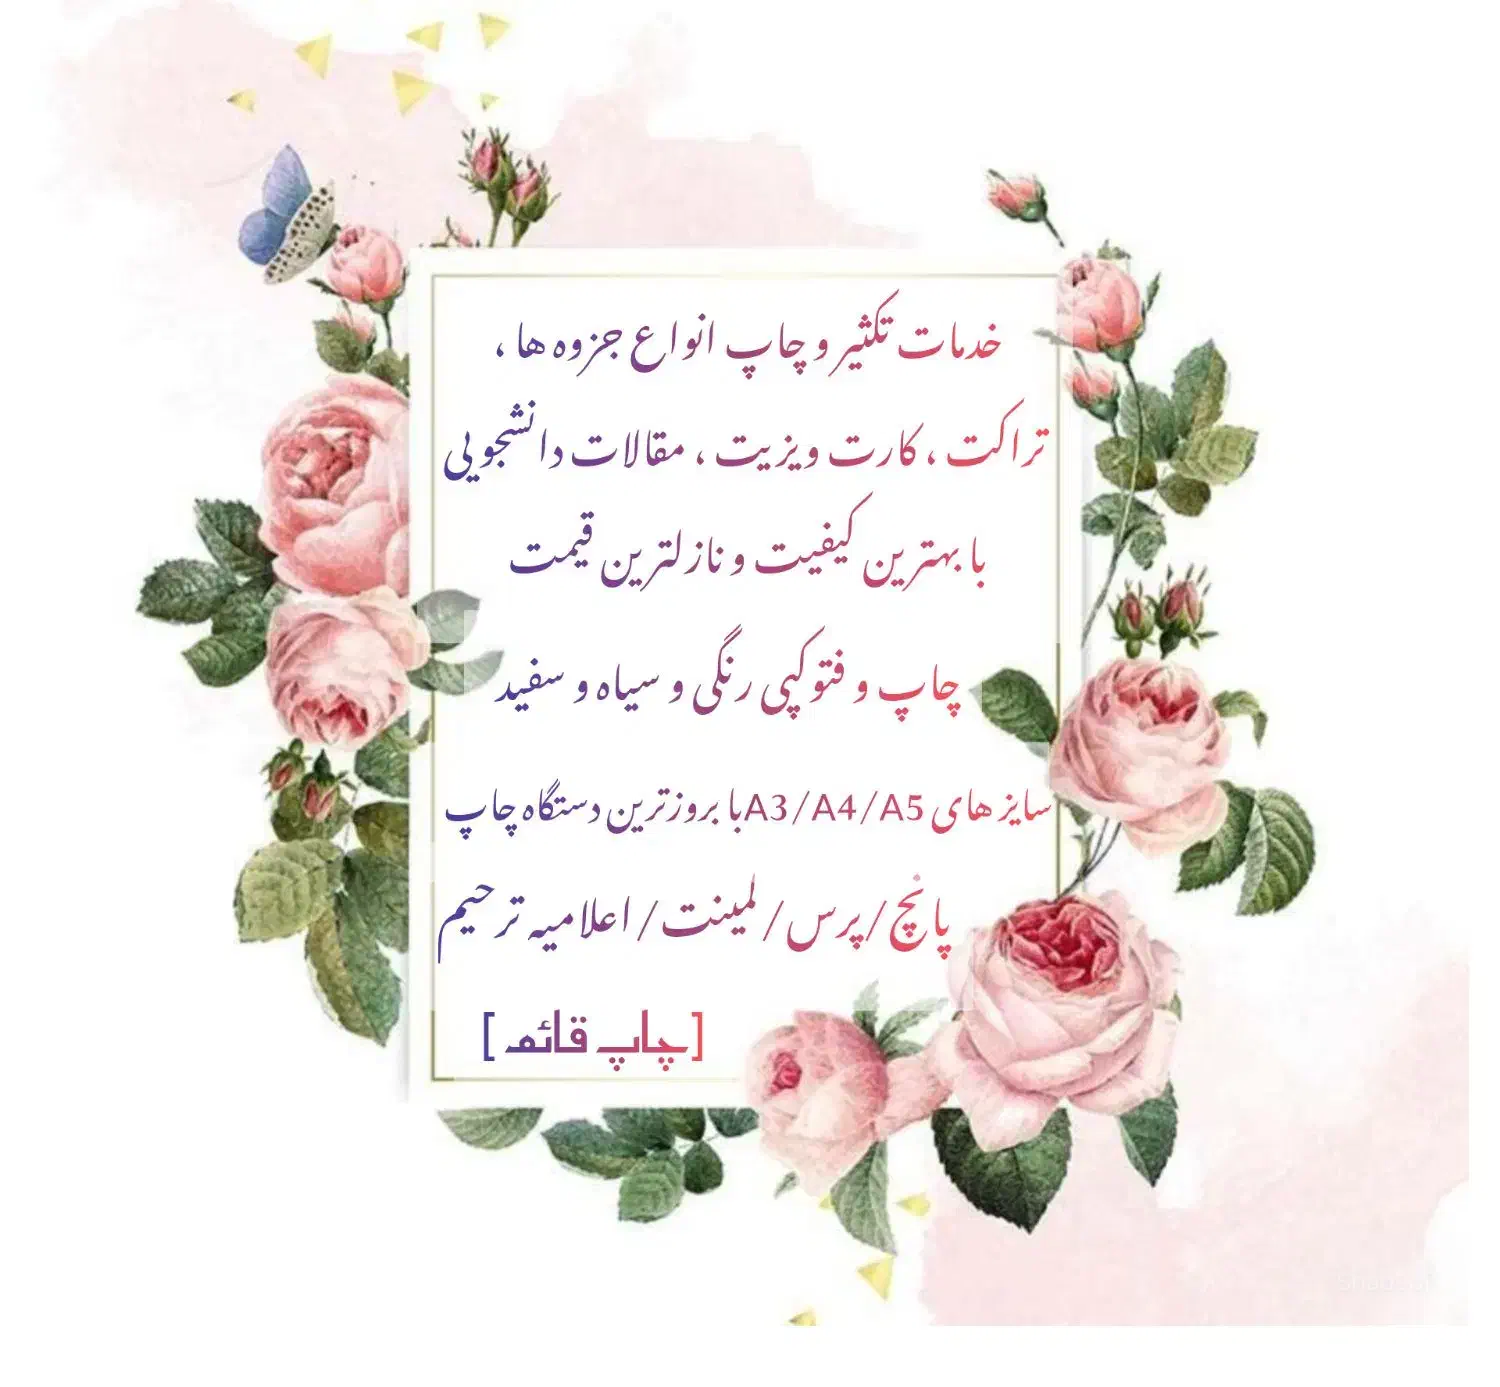 خدمات تکثیر و چاپ انواع جزوه ها ،
تراکت ، کارت ویزیت ، مقالات دانشجویی
با بهترین کیفیت و نازلترین قیمت
چاپ و فتوکپی رنگی و سیاه و سفید
سایز های A3/A4/A5با بروزترین دستگاه چاپ
پانچ /پرس/ لمینت/ اعلامیه ترحیم
[چاپ قائم ]